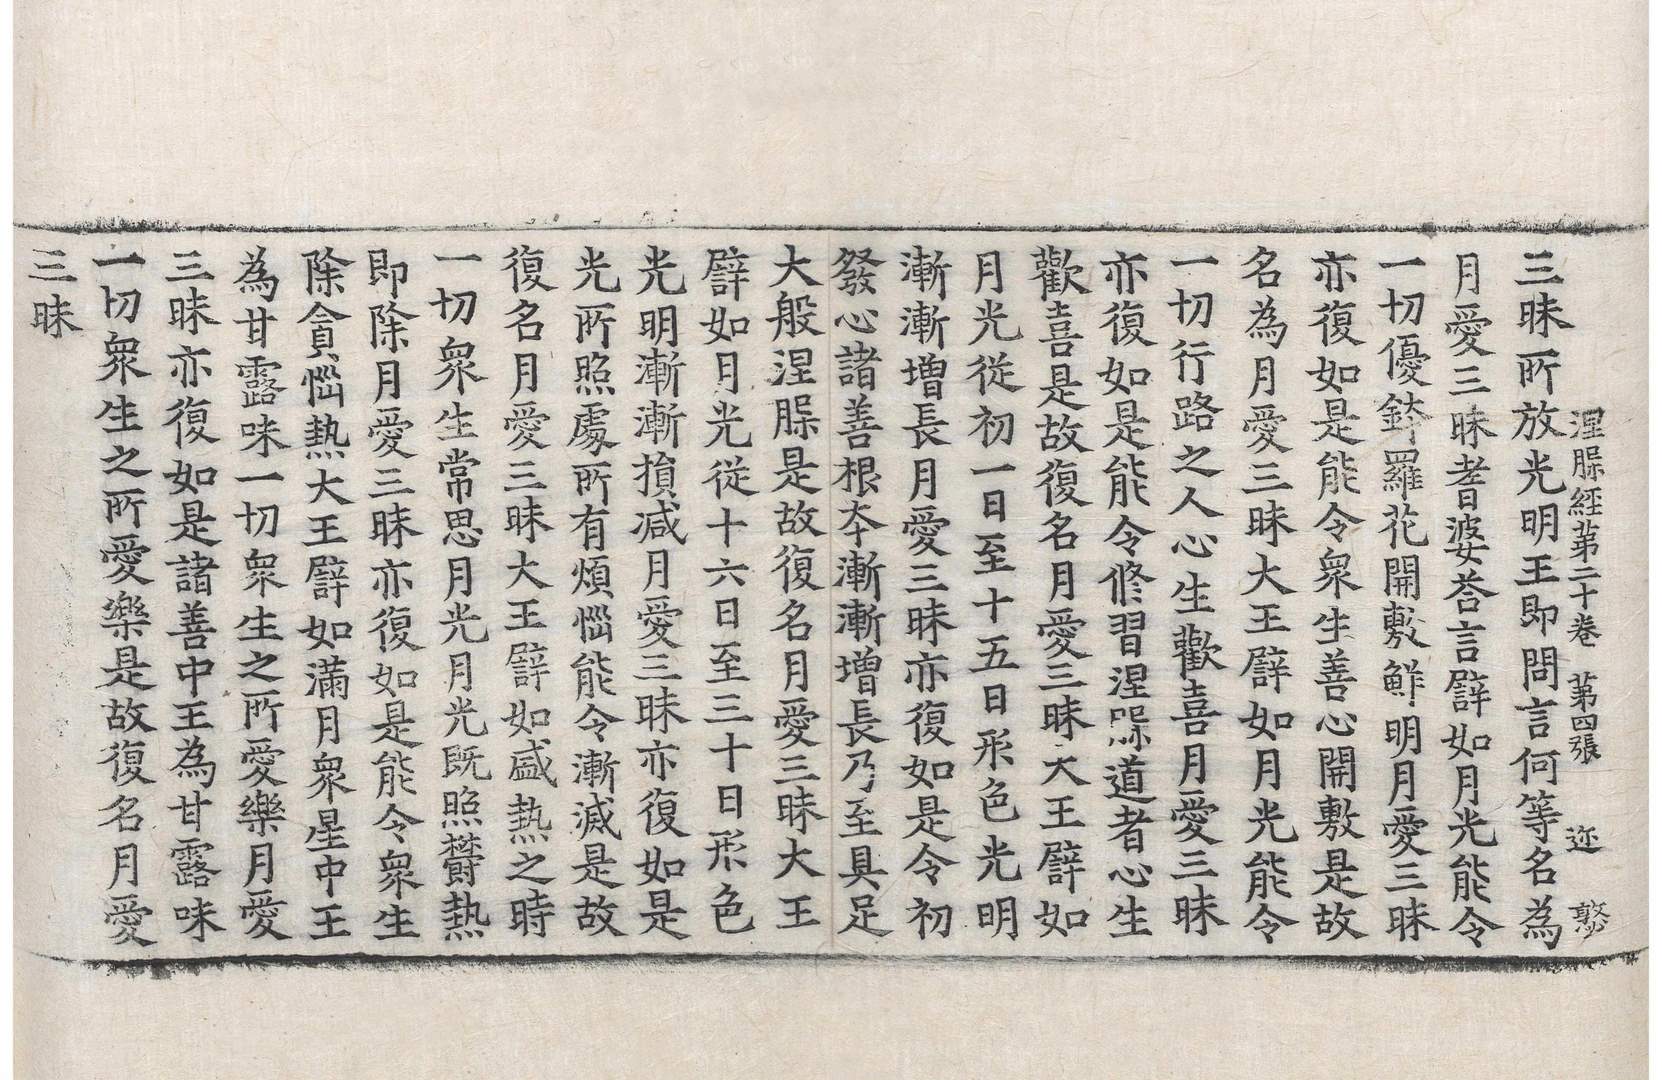 涅槃經第二十卷 第四張 迩
三昧所放光明王即問言何等名為
月愛三昧耆婆荅言譬如月光能令
一切優鉢羅花開敷鮮明月愛三昧
亦復如是能令衆生善心開敷是故
名為月愛三昧大王譬如月光能令
一切行路之人心生歡喜月愛三昧
亦復如是能令修習涅槃道者心生
歡喜是故復名月愛三昧大王譬如
月光從初一日至十五日形色光明
漸漸增長月愛三昧亦復如是令初
發心諸善根本漸漸增長乃至具足
大般涅槃是故復名月愛三昧大王
譬如月光從十六日至三十日形色
光明漸漸損減月愛三昧亦復如是
光所照處所有煩惱能令漸減是故
復名月愛三昧大王譬如盛熱之時
一切衆生常思月光月光既照欝熱
即除月愛三昧亦復如是能令衆生
除貪惱熱大王譬如滿月衆星中王
為甘露味一切衆生之所愛樂月愛
三昧亦復如是諸善中王為甘露味
一切衆生之所愛樂是故復名月愛
三昧